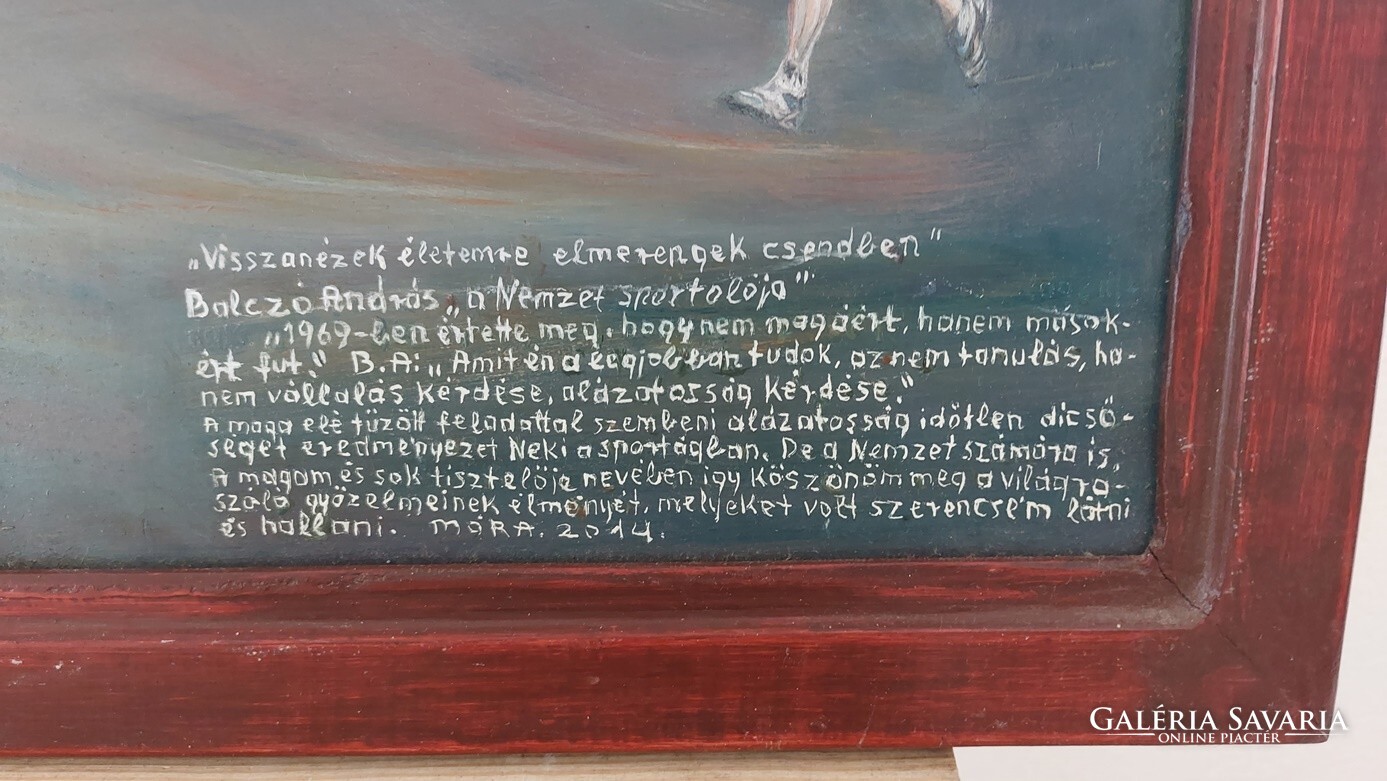 „Visszanézek életemre elmerengek csendben"
Balczó András „a Nemzet sportolója"
„1969-ben értette meg, hogy nem magáért, hanem mások-
ért fut." B.A: „Amit én a legjobban tudok, az nem tanulás, ha-
nem vállalás kérdése, alázatosság kérdése."
A maga elé tűzött feladattal szembeni alázatosság időtlen dicső-
séget eredményezet Neki a sportágban. De a Nemzet számára is,
A magam és sok tisztelője nevében így köszönöm meg a világra-
szóló győzelmeinek élményét, melyeket volt szerencsém látni
és hallani. MÓRA. 2014.
GALÉRIA SAVARIA
ONLINE PIACTÉR